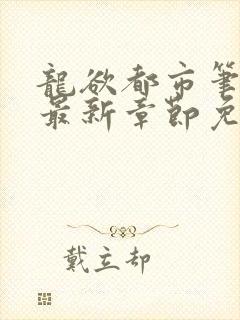 龍欲都市筆
最新章節免
戴立却